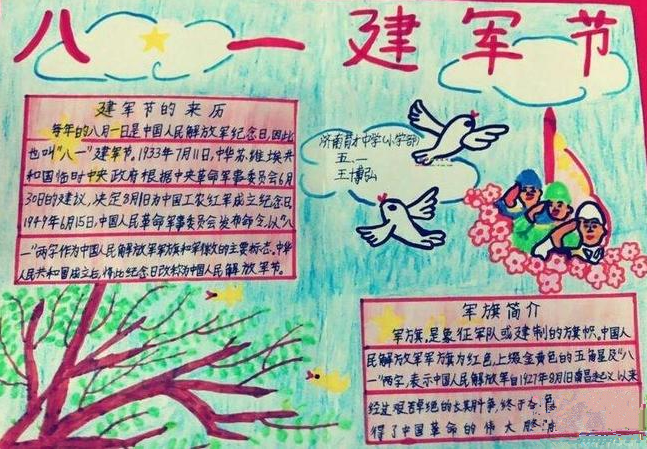 八一建军节
建军节的来历
每年的八月一日是中国人民解放军纪念日,因此
也叫“八一”建军节。1933年7月11日,中华苏维埃共
和国临时中央政府根据中央革命军事委员会6月
30日的建议,决定8月1日为中国工农红军成立纪念日
1949年6月15日,中国人民革命军事委员会发布命令,以“八
一”两字作为中国人民解放军军旗和军徽的主要标志。中华
人民共和国成立后,将此纪念日改称为中国人民解放军节。
济南育才中学(小学部)
五、一
王博弘
军旗简介
军旗,是象征军队或建制的旗帜。中国人
民解放军军旗为红色,上缀金黄色的五角星及“八
一”两字,表示中国人民解放军自1927年8月1日南昌起义以来
经过艰苦卓绝的长期斗争,终于
得了中国革命的伟大胜